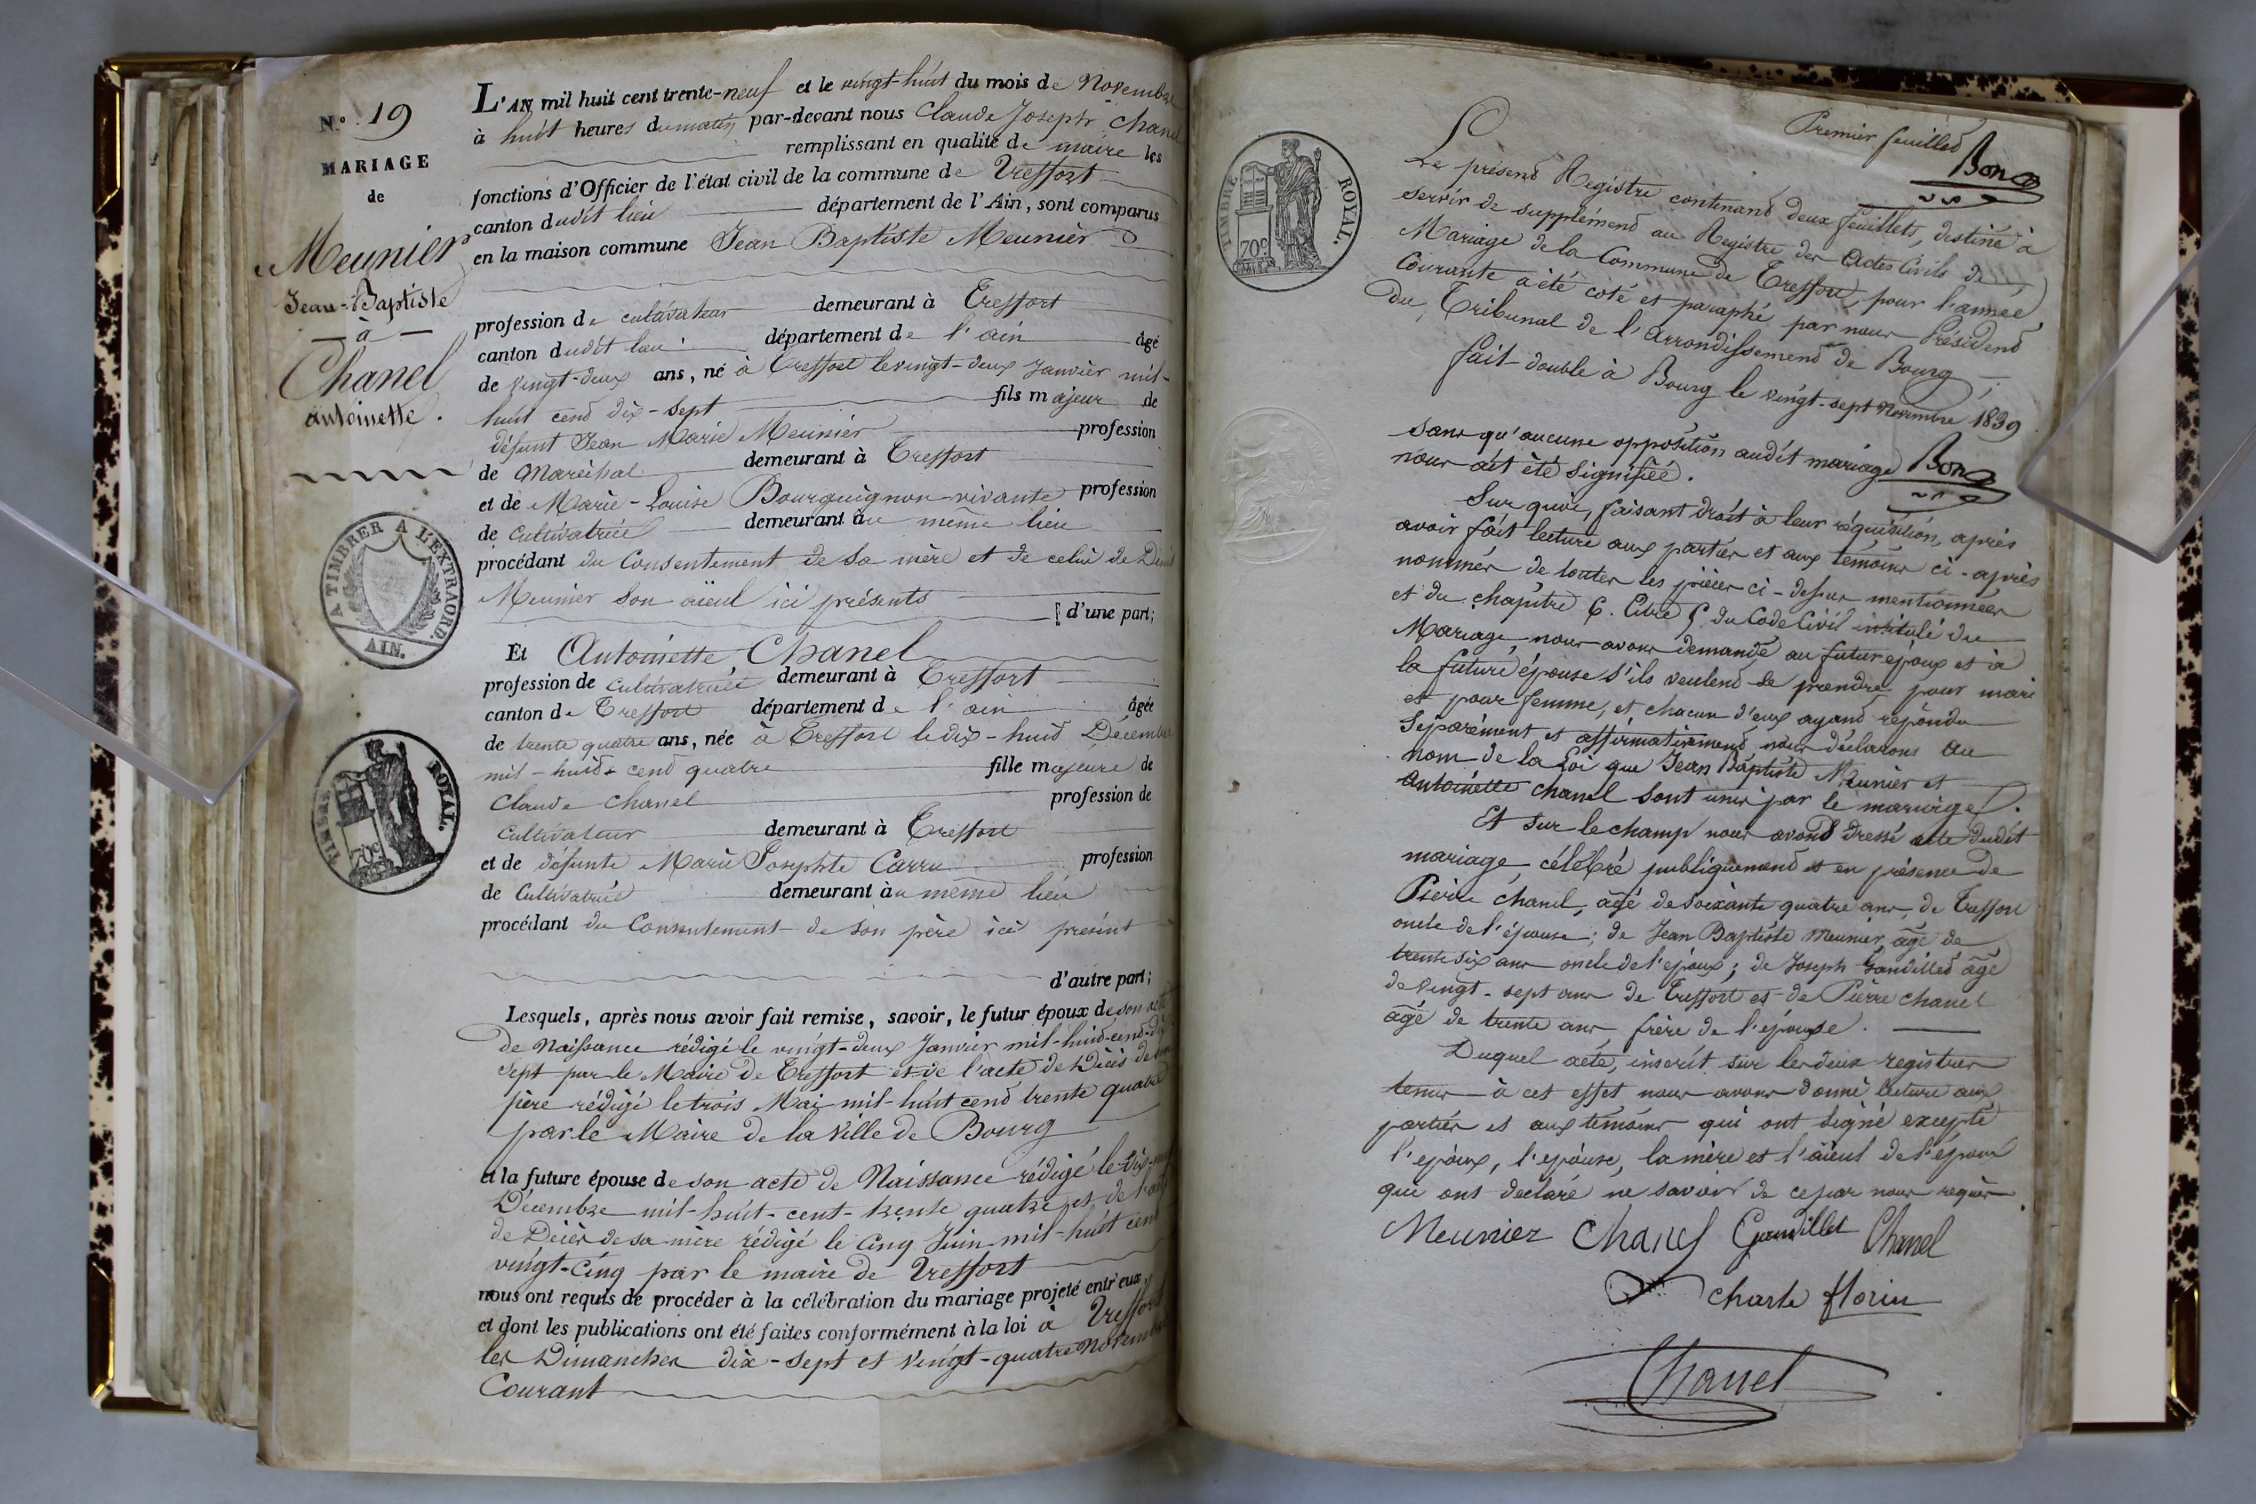 N.o 19
MARIAGE
de
Meunier
Jean-Baptiste
à
Chanel
antoinette.
A TIMBRER A L'EXTRAORD.
AIN.
TIMBRE ROYAL.
70c
L'AN mil huit cent trente-neuf et le vingt-huit du mois de Novembre
à huit heures du matin par-devant nous Claude Joseph Chanel
remplissant en qualité de maire les
fonctions d'Officier de l'état civil de la commune de Treffort
canton dudit lieu département de l'Ain, sont comparus
en la maison commune Jean Baptiste Meunier
profession de cultivateur demeurant à Treffort
canton dudit lieu département de l'ain âgé
de vingt-deux ans, né à Treffort le vingt-deux Janvier mil-
huit cend dix-sept fils majeur de
défunt Jean Marie Meunier profession
de Maréchal demeurant à Treffort
et de Marie-Louise Bourguignon vivante profession
de Cultivatrice demeurant au même lieu
procédant du Consentement de sa mère et de celui de Denis
Meunier son aïeul ici présents d'une part;
Et Antoinette Chanel
profession de cultivatrice demeurant à Treffort
canton de Treffort département de l'ain âgée
de trente quatre ans, née à Treffort le dix-huid Décembre
mil-huid cend quatre fille majeure de
Claude Chanel profession de
Cultivateur demeurant à Treffort
et de défunte Marie Josephte Carru profession
de Cultivatrice demeurant au même lieu
procédant du Consentement de son père ici présint
d'autre part;
Lesquels, après nous avoir fait remise, savoir, le futur époux de son acte
de Naissance rédigé le vingt-deux Janvier mil-huid-cend-dix
sept par le Maire de Treffort et de l'acte de Décès de son
père rédigé le trois Mai mil-huit cend trente quatre
par le Maire de la Ville de Bourg
et la future épouse de son acte de Naissance rédigé le dix-
Décembre mil-huit-cent-trente quatre et de l'acte
de Décès de sa mère rédigé le Cinq Juin mil-huit cent
vingt-Cinq par le maire de Treffort
nous ont requis de procéder à la célébration du mariage projeté entr'eux,
et dont les publications ont été faites conformément à la loi à Treffort
les Dimanches dix-sept et vingt-quatre novembre
Courant
TIMBRE ROYAL.
70c
Premier feuilled
Bon
Le présend Registre contenand deux feuillets, destiné à
servir de supplémend au Registre des Actes Civils de
Mariage de la Commune de Treffort, pour l'année
Courante a été coté et paraphé par nous Présidend
du Tribunal de l'arrondissemend de Bourg
fait double à Bourg le vingt-sept Novembre 1839
Bon
sans qu'aucune opposition audit mariage
nous ait été signifiée.
Sur quoi, faisant droit à leur réquisition, après
avoir fait lecture aux parties et aux témoins ci-après
nommés de toutes les pièces ci-dessus mentionnées
et du chapitre 6. Titre 5. du Code Civil intitulé du
Mariage, nous avons demandé au futur époux et à
la future épouse s'ils veulend se prendre pour mari
et pour femme, et chacun d'eux ayand répondu
séparément et affirmativemend, nous déclarons au
nom de la loi que Jean Baptiste Meunier et
Antoinette Chanel sont unis par le mariage.
Et sur le champ nous avons dressé acte dudit
mariage, célébré publiquemend et en présence de
Pierre Chanel, âgé de soixante quatre ans, de Treffort
oncle de l'épouse; de Jean Baptiste Meunier âgé de
trente six ans oncle de l'époux; de Joseph Gandilled âgé
de vingt-sept ans de Treffort et de Pierre Chanel
âgé de trente ans frère de l'épouse.
Duquel acte, inscrit sur les deux registres
tenus à cet effet nous avons donné lecture aux
parties et aux témoins qui ont signé excepté
l'époux, l'épouse, la mère et l'aïeul de l'époux
qui ont déclaré ne savoir de ce par nous requis.
Meunier Chanel Gandillet Chanel
Charle florin
Chanel